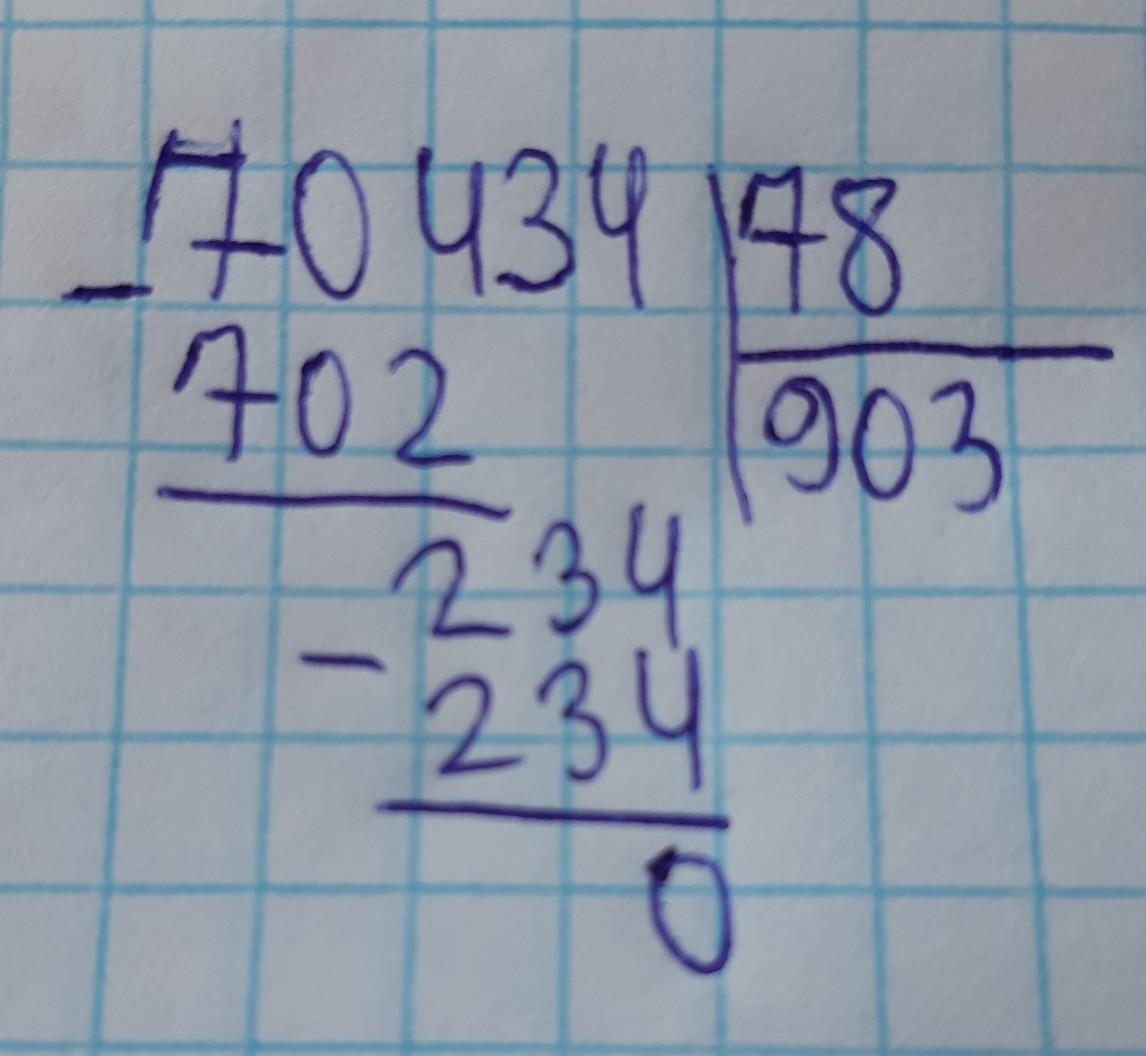 70434 78
- 702 903
234
- 234
0